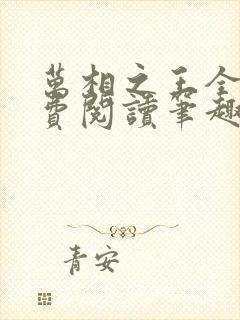 萬相之王全
費閱讀筆趣
青安